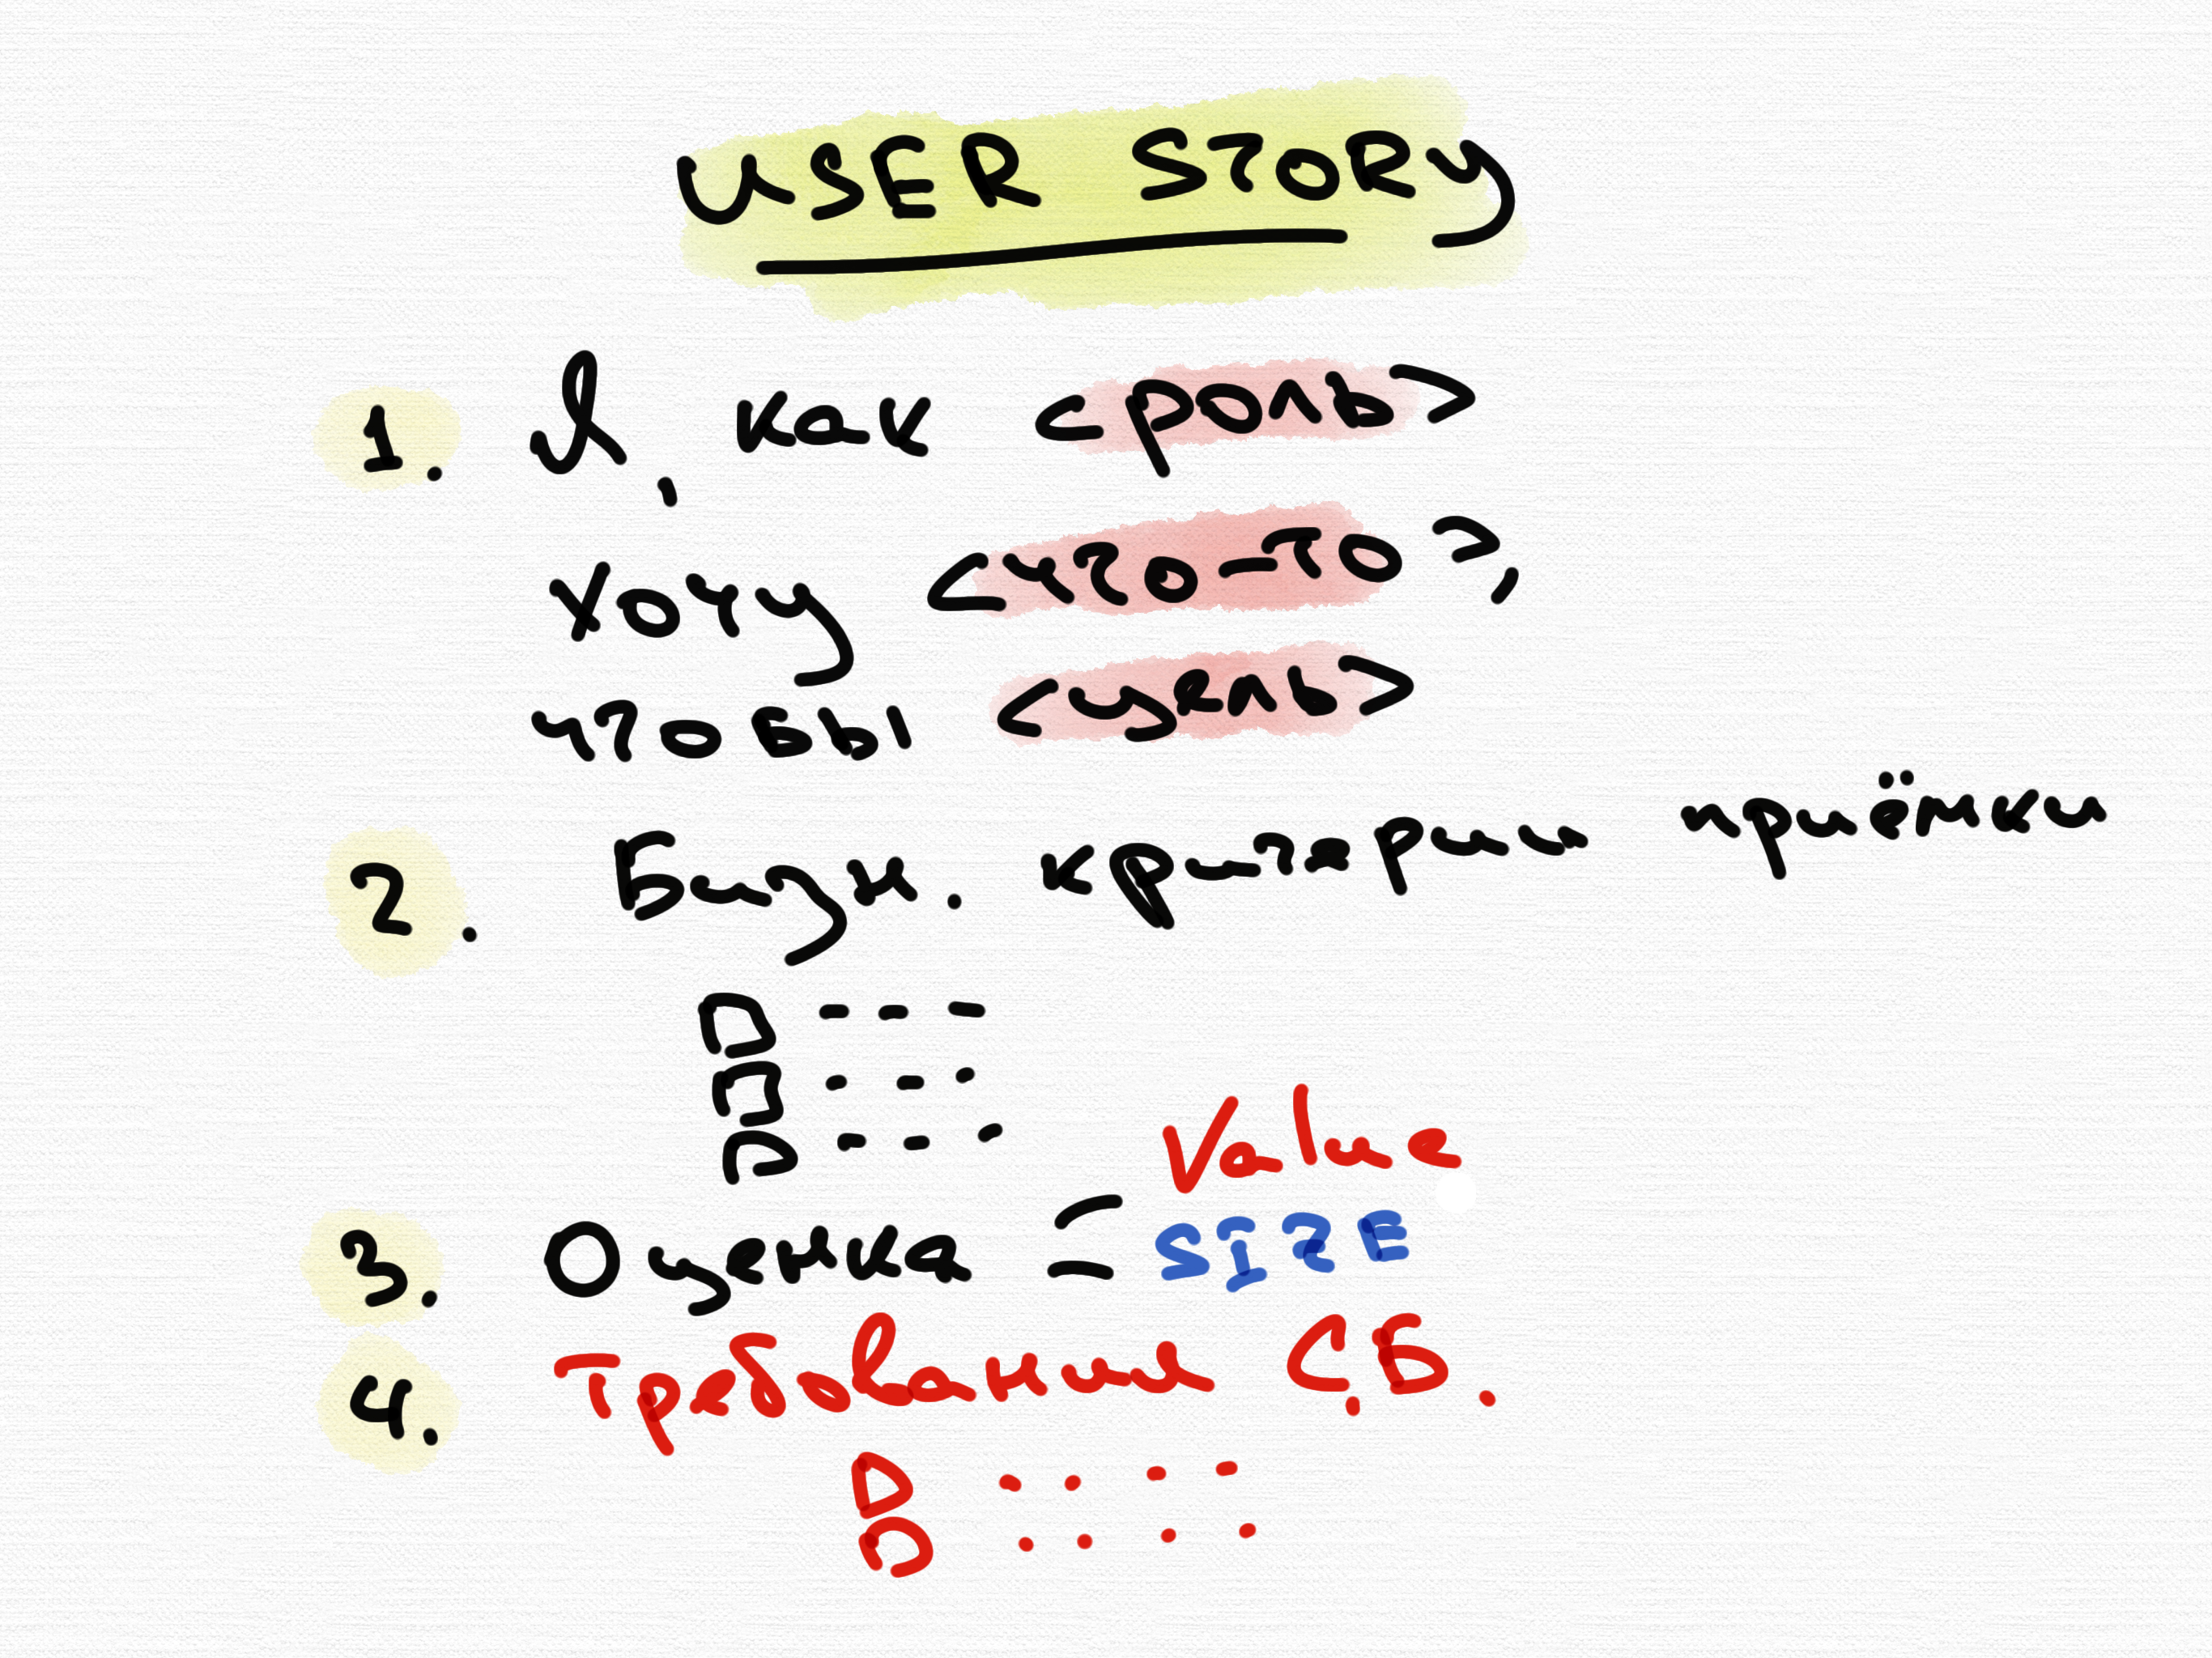 USER STORY
1. Я, как <роль>
хочу <что-то>,
чтобы <цель>
2. Бизн. критерии приёмки
Value
3. Оценка SIZE
4. Требования С.Б.